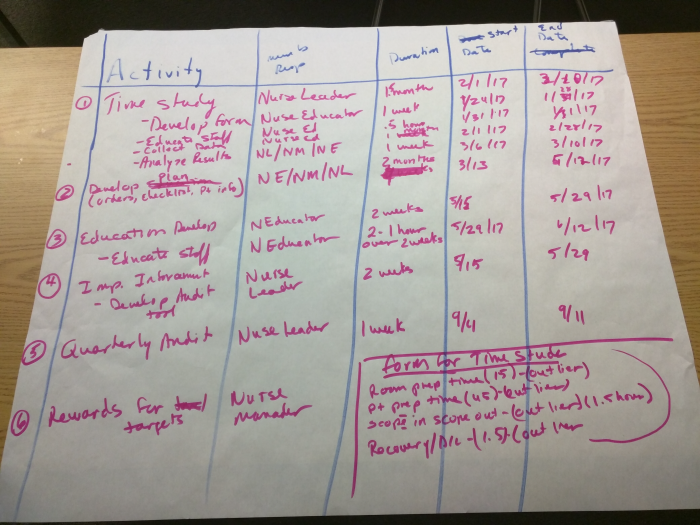 Activity Resp Duration Start Date End Date
① Time study Nurse Leader 1.5 month 2/1/17 3/10/17
- Develop form Nuse Educator 1 week 1/24/17 1/31/17
- Educate Staff Nuse Ed .5 hour 1/31/17 1/31/17
- Collect Data Nurse Ed 1 month 2/1/17 2/28/17
- Analyze Results NL/NM/NE 1 week 3/6/17 3/10/17
② Develop Plan NE/NM/NL 2 months 3/13 5/12/17
(orders, checklist, pt info)
③ Education Develop NEducator 2 weeks 5/15 5/29/17
- Educate Staff NEducator 2-1 hour over 2 weeks 5/29/17 6/12/17
④ Imp. Nurse Leader 2 weeks 5/15 5/29
- Develop Audit tool
⑤ Quarterly Audit Nuse Leader 1 week 9/4 9/11
⑥ Rewards for targets Nurse Manager
Form for Time Stude
Room prep time (15) - (outlier)
pt prep time (45) - (outlier)
scope in scope out - (outlier) (1.5 hour)
Recovery/D/c - (1.5) - (outlier